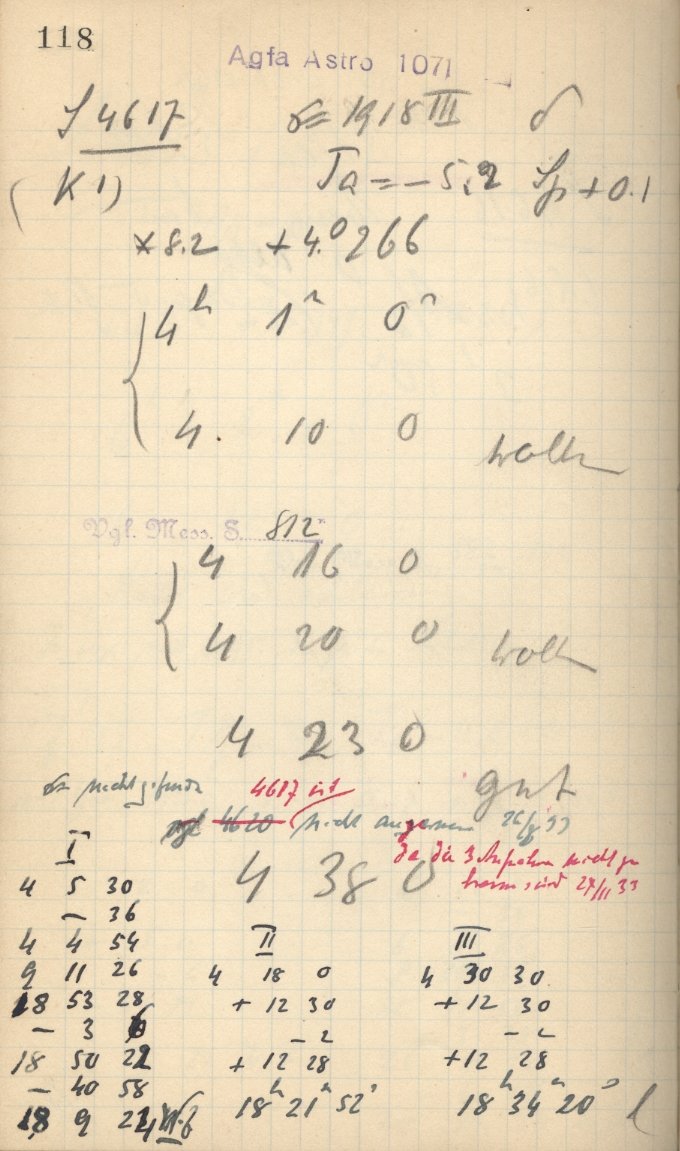 118
Agfa Astro 1071
S 4617 = 1918 III
(K 1) Ta = - 5.2 Sp + 0.1
* 8.2 + 4.0 266
4h 1m 0s
4. 10 0
Wolk
Vgl. Mess. S. 812
4 16 0
4 20 0
Wolk
4 23 0
gut
nicht gefunden
4617 ist
vgl 4620 nicht 33
da die 3 Aufnahmen nicht zu
4 38 0
sind 27/II 33
I
4 5 30
- 36
4 4 54
9 11 26
18 53 28
- 3 6
18 50 22
- 40 58
18 9 24
II
4 18 0
+ 12 30
- 2
+ 12 28
18h 21m 52s
III
4 30 30
+ 12 30
- 2
+12 28
18h 34m 20s